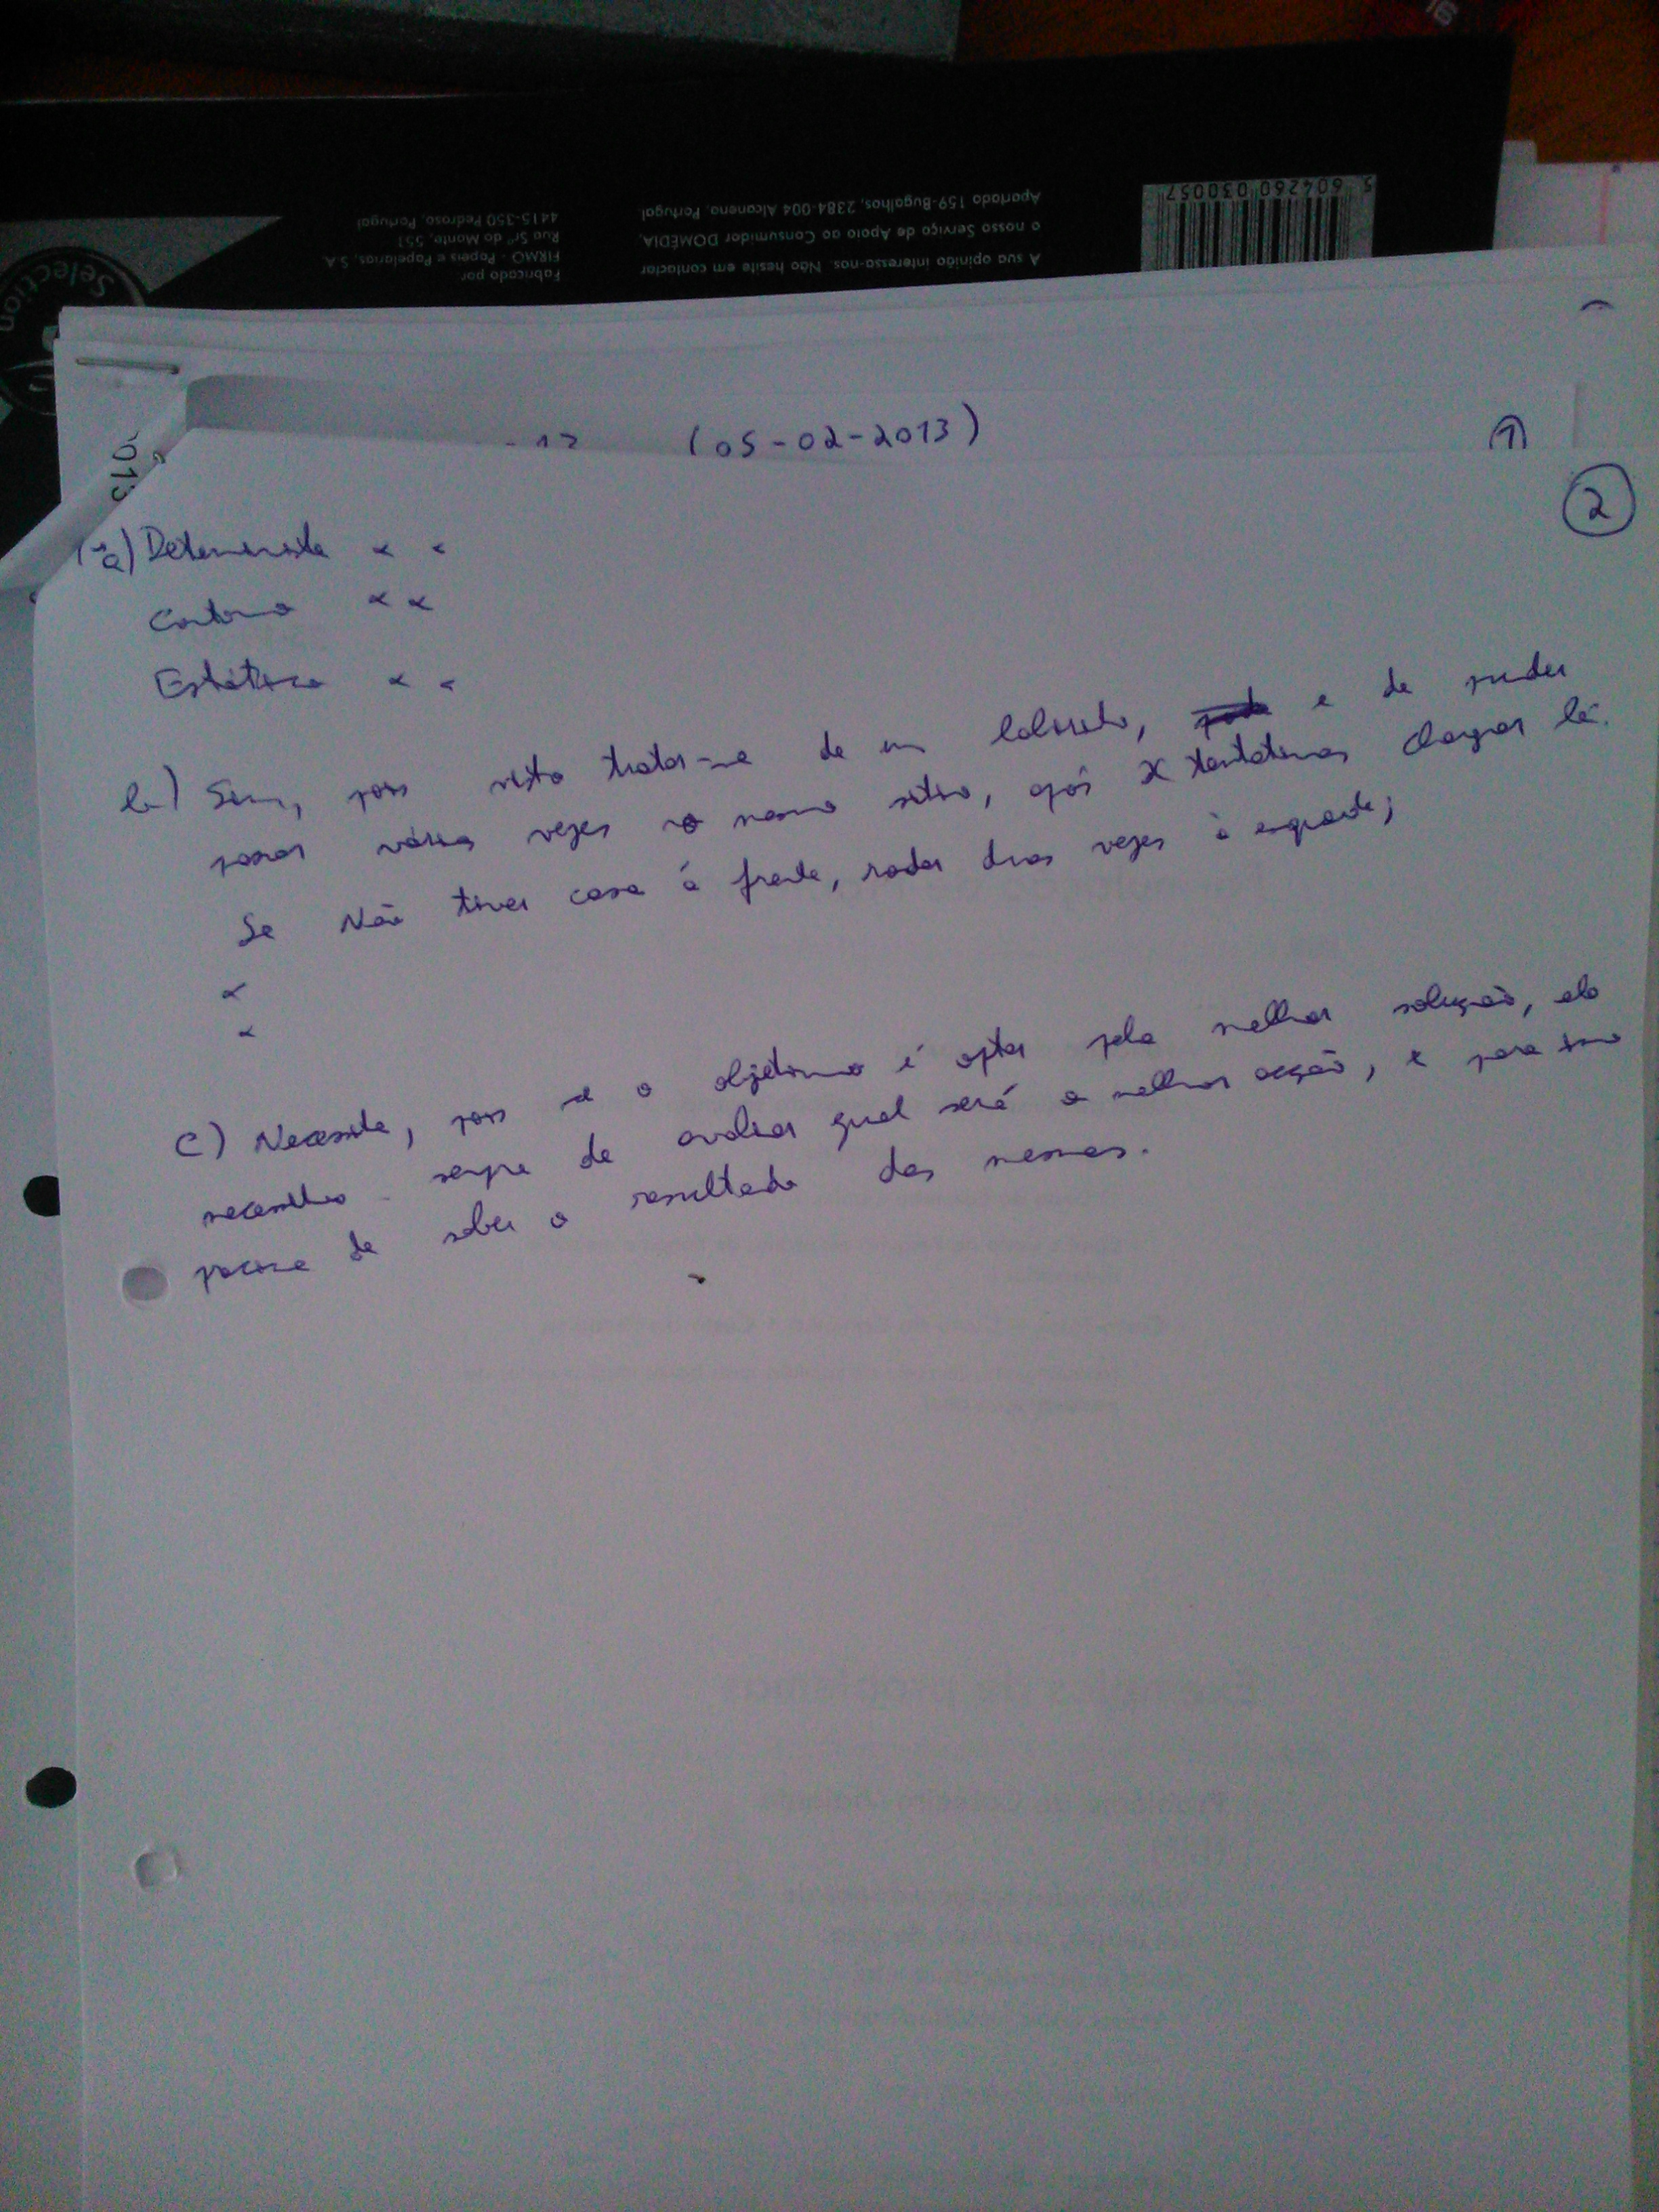 16
5 604260 030057
A sua opinião interessa-nos. Não hesite em contactar
o nosso Serviço de Apoio ao Consumidor DOMÉDIA,
Apartado 159-Bugalhos, 2384-004 Alcanena, Portugal
Fabricado por:
FIRMO - Papeis e Papelarias, S.A.
Rua Srº do Monte, 551
4415-350 Pedroso, Portugal
Selection
(05-02-2013)
1
013
2
a) Determinista " "
Contínuo " "
Estático " "
b) Sim, pois visto tratar-se de um labirinto, e de puder
passar várias vezes no mesmo sitio, após X tentativas chegar lá.
Se Não tiver casa à frente, rodar duas vezes à esquerda;
"
"
C) Necessita, pois se o objetivo é optar pela melhor solução, ele
necessita sempre de avaliar qual será a melhor acção, e para isso
precisa de saber o resultado das mesmas.